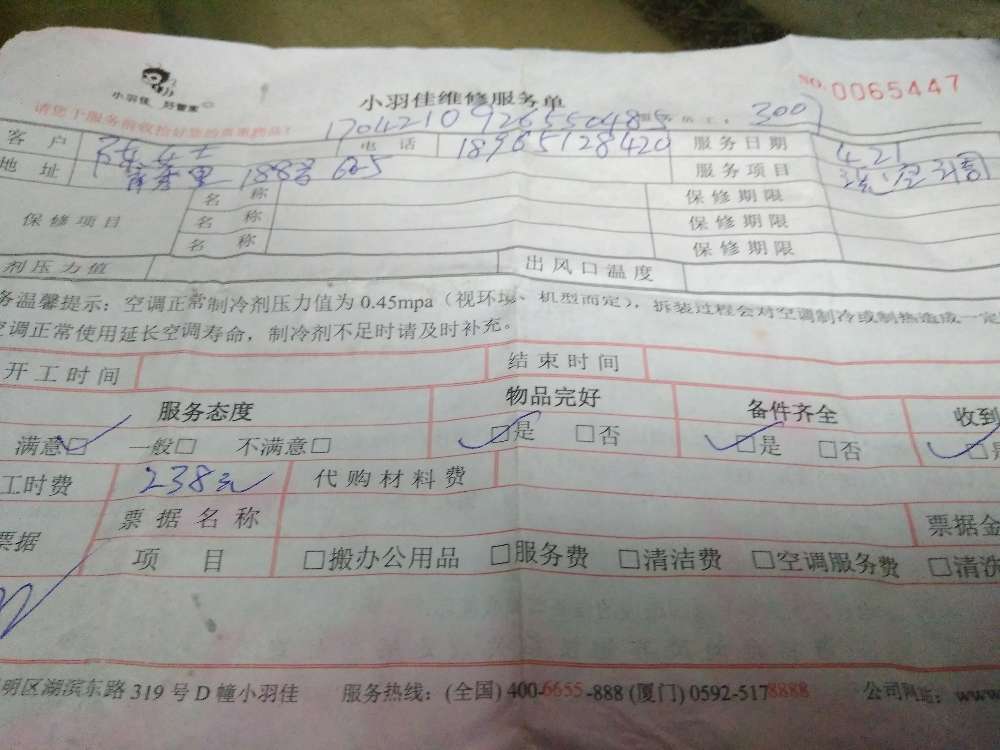 小羽佳 好管家
小羽佳维修服务单
NO. 0065447
请您于服务前收拾好您的贵重物品!
170421092655048 300
客户 女士 电话 18965128420 服务日期 4.21
地址 188号 605 服务项目
保修项目 名称 保修期限
名称 保修期限
名称 保修期限
剂压力值 出风口温度
务温馨提示：空调正常制冷剂压力值为0.45mpa（视环境、机型而定），拆装过程会对空调制冷或制热造成一定
空调正常使用延长空调寿命，制冷剂不足时请及时补充。
开工时间 结束时间
服务态度 物品完好 备件齐全 收到
满意□ 一般□ 不满意□ □是 □否 □是 □否
工时费 238元 代购材料费
票据 票据名称 票据金
项目 □搬办公用品 □服务费 □清洁费 □空调服务费 □清洗
明区湖滨东路319号D幢小羽佳 服务热线：(全国) 400-6655-888 (厦门) 0592-5178888 公司网址：www